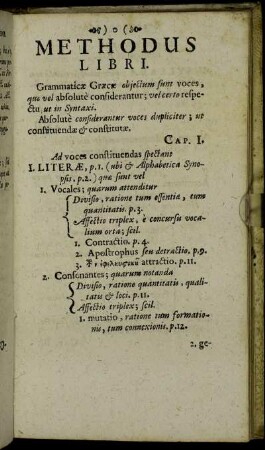 METHODUS
LIBRI.
Grammaticæ Græcæ objectum sunt voces,
quæ vel absolutè considerantur; vel certo respe-
ctu, ut in Syntaxi.
Absolutè considerantur voces dupliciter; ut
constituendæ & constitutæ.
CAP. I.
Ad voces constituendas spectant
I. LITERÆ, p.1. (ubi & Alphabetica Syno-
psis, p.2.) quæ sunt vel
1. Vocales; quarum attenditur
Divisio, ratione tum essentiæ, tum
quantitatis. p.3.
Affectio triplex, è concursu voca-
lium orta; scil.
1. Contractio. p.4.
2. Apostrophus seu detractio. p.9.
3. ἐφελκυστικοῦ attractio. p.11.
2. Consonantes; quarum notanda
Divisio, ratione quantitatis, quali-
tatis & loci. p.11.
Affectio triplex; scil.
1. mutatio, ratione tum formatio-
nis, tum connexionis. p.12.
2. ge-